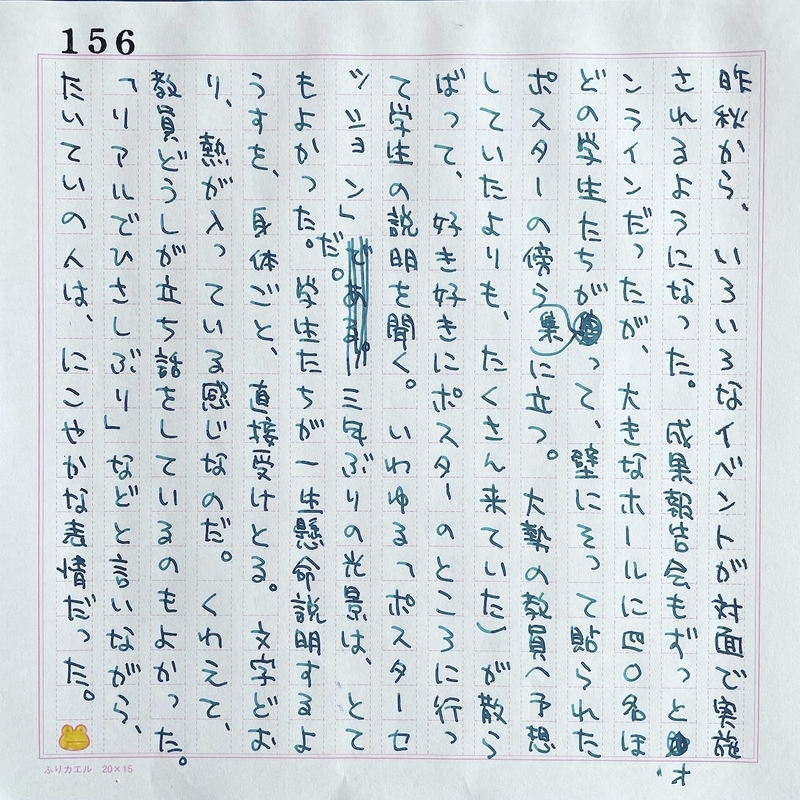 156
昨秋から、いろいろなイベントが対面で実施
されるようになった。成果報告会もずっとオ
ンラインだったが、大きなホールに四〇名ほ
どの学生たちが集って、壁にそって貼られた
ポスターの傍らに立つ。大勢の教員(予想
していたよりも、たくさん来ていた)が散ら
ばって、好き好きにポスターのところに行っ
て学生の説明を聞く。いわゆる「ポスターセ
ッション」だ。三年ぶりの光景は、とて
もよかった。学生たちが一生懸命説明するよ
うすを、身体ごと、直接受けとる。文字どお
り、熱が入っている感じなのだ。くわえて、
教員どうしが立ち話をしているのもよかった。
「リアルでひさしぶり」などと言いながら、
たいていの人は、にこやかな表情だった。
ふりカエル 20×15